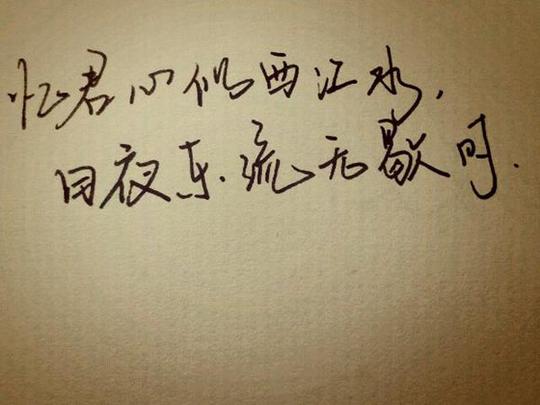 忆君心似西江水，
日夜东流无歇时．